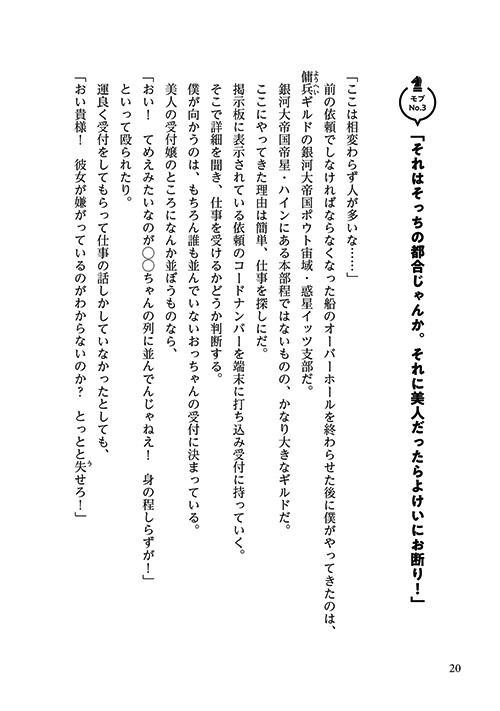 モブ
No.3
「それはそっちの都合じゃんか。それに美人だったらよけいにお断り！」
「ここは相変わらず人が多いな……」
前の依頼でしなければならなくなった船のオーバーホールを終わらせた後に僕がやってきたのは、
傭兵ギルドの銀河大帝国ポウト宙域・惑星イッツ支部だ。
ようへい
銀河大帝国帝星・ハインにある本部程ではないものの、かなり大きなギルドだ。
ここにやってきた理由は簡単、仕事を探しにだ。
掲示板に表示されている依頼のコードナンバーを端末に打ち込み受付に持っていく。
そこで詳細を聞き、仕事を受けるかどうか判断する。
僕が向かうのは、もちろん誰も並んでいないおっちゃんの受付に決まっている。
美人の受付嬢のところになんか並ぼうものなら、
「おい！　てめえみたいなのが○○ちゃんの列に並んでんじゃねえ！　身の程しらずが！」
といって殴られたり。
運良く受付をしてもらって仕事の話しかしていなかったとしても、
「おい貴様！　彼女が嫌がっているのがわからないのか？　とっとと失せろ！」
う
20